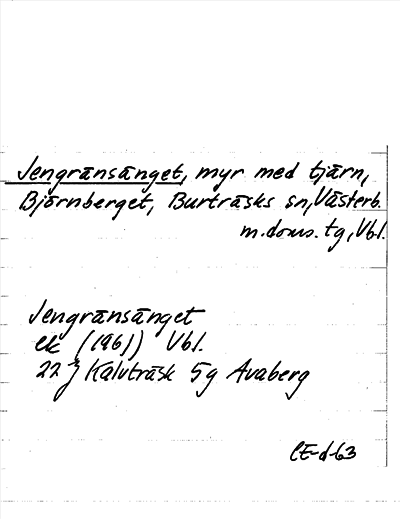 Jengränsänget, myr med tjärn,
Björnberget, Burträsks sn, Västerb.
m.doms. tg, Vbl.
Jengränsänget
ek (1961) Vbl.
22 J Kalvträsk 5g Avaberg
CE-d-63